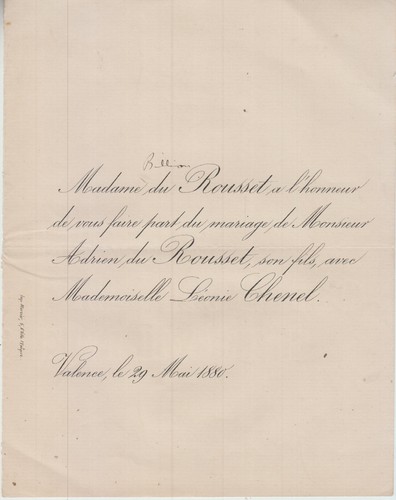 Madame du Rousset a l'honneur
de vous faire part du mariage de Monsieur
Adrien du Rousset, son fils, avec
Mademoiselle Léonie Chenel.
Valence, le 29 Mai 1880.